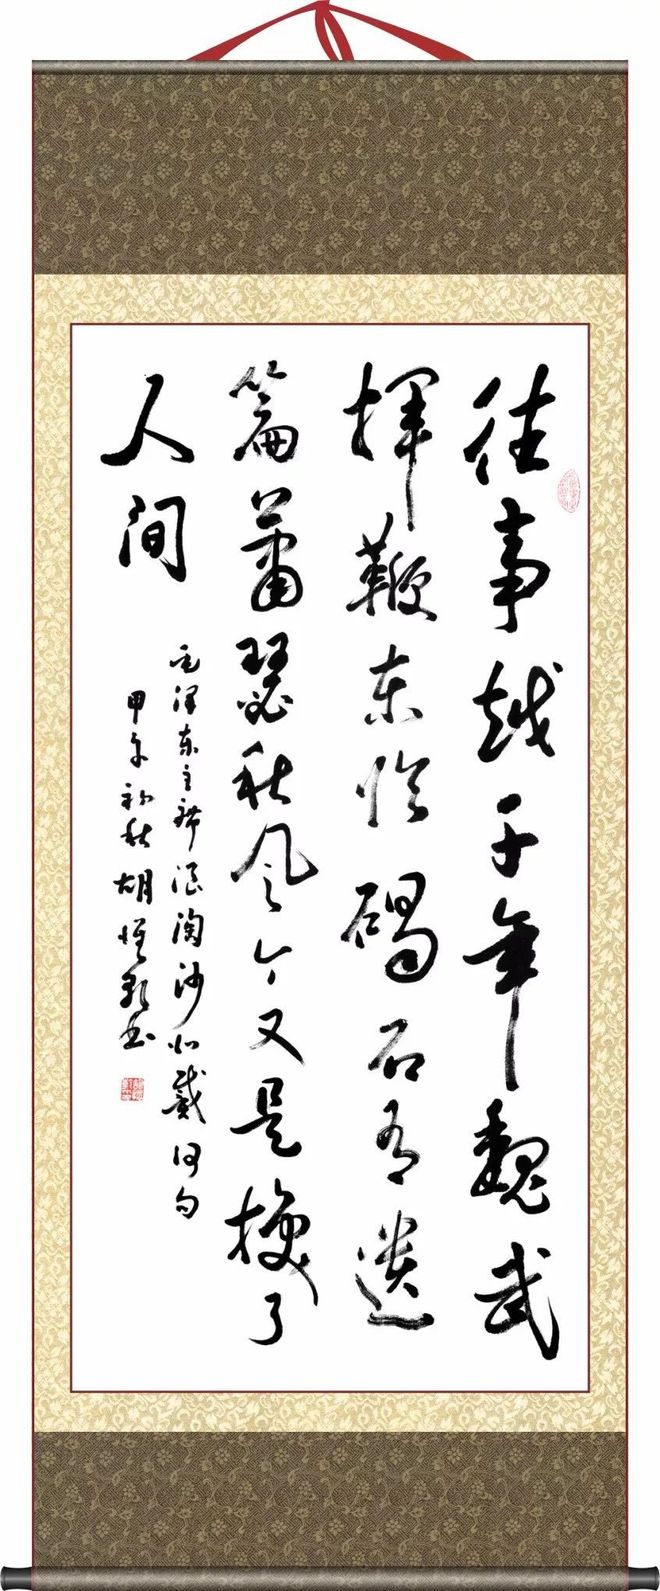 往事越千年魏武
揮鞭东临碣石有遗
篇萧瑟秋风今又是换了
人间
毛泽东主席浪淘沙北戴河句
甲午初秋胡
书